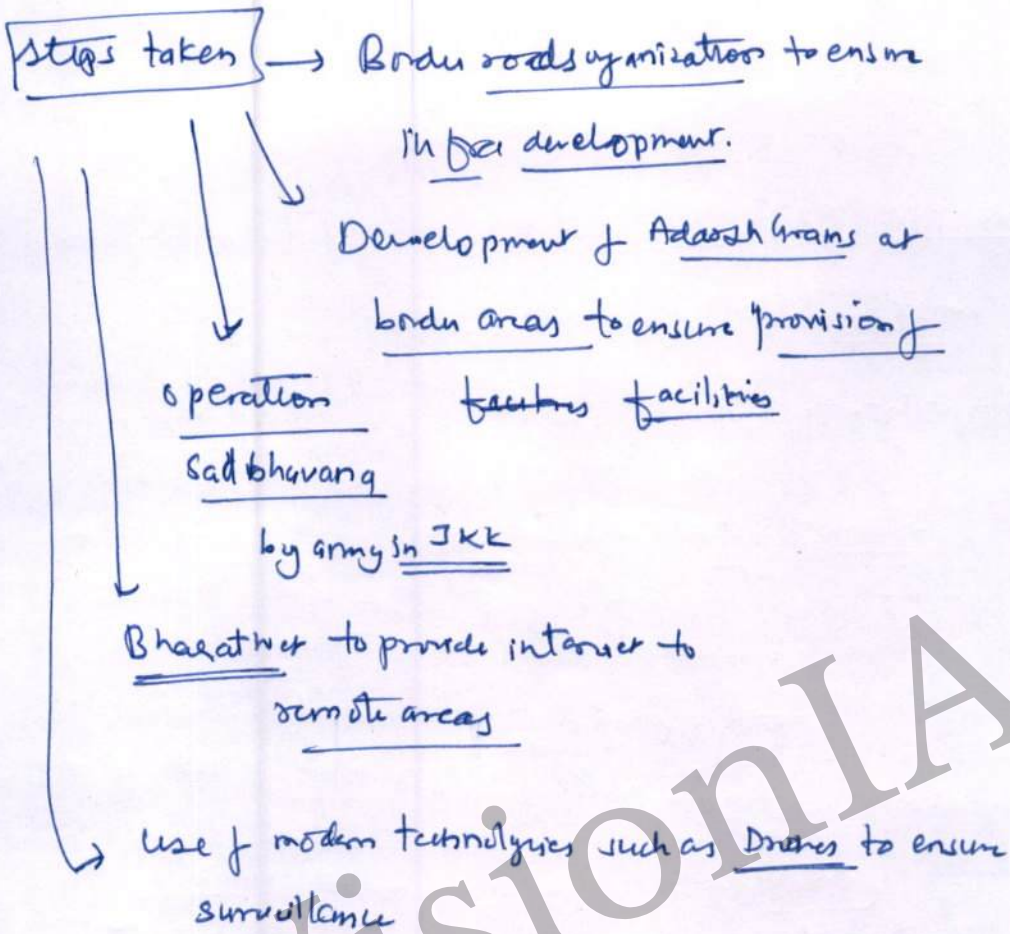 steps taken → Border roads organization to ensure
infra development.
Development of Adarsh Grams at
border areas to ensure provision of
facilities
operation
sadbhavana
by army in J&K
Bharatnet to provide internet to
remote areas
use of modern technologies such as Drones to ensure
surveillance
visionIA